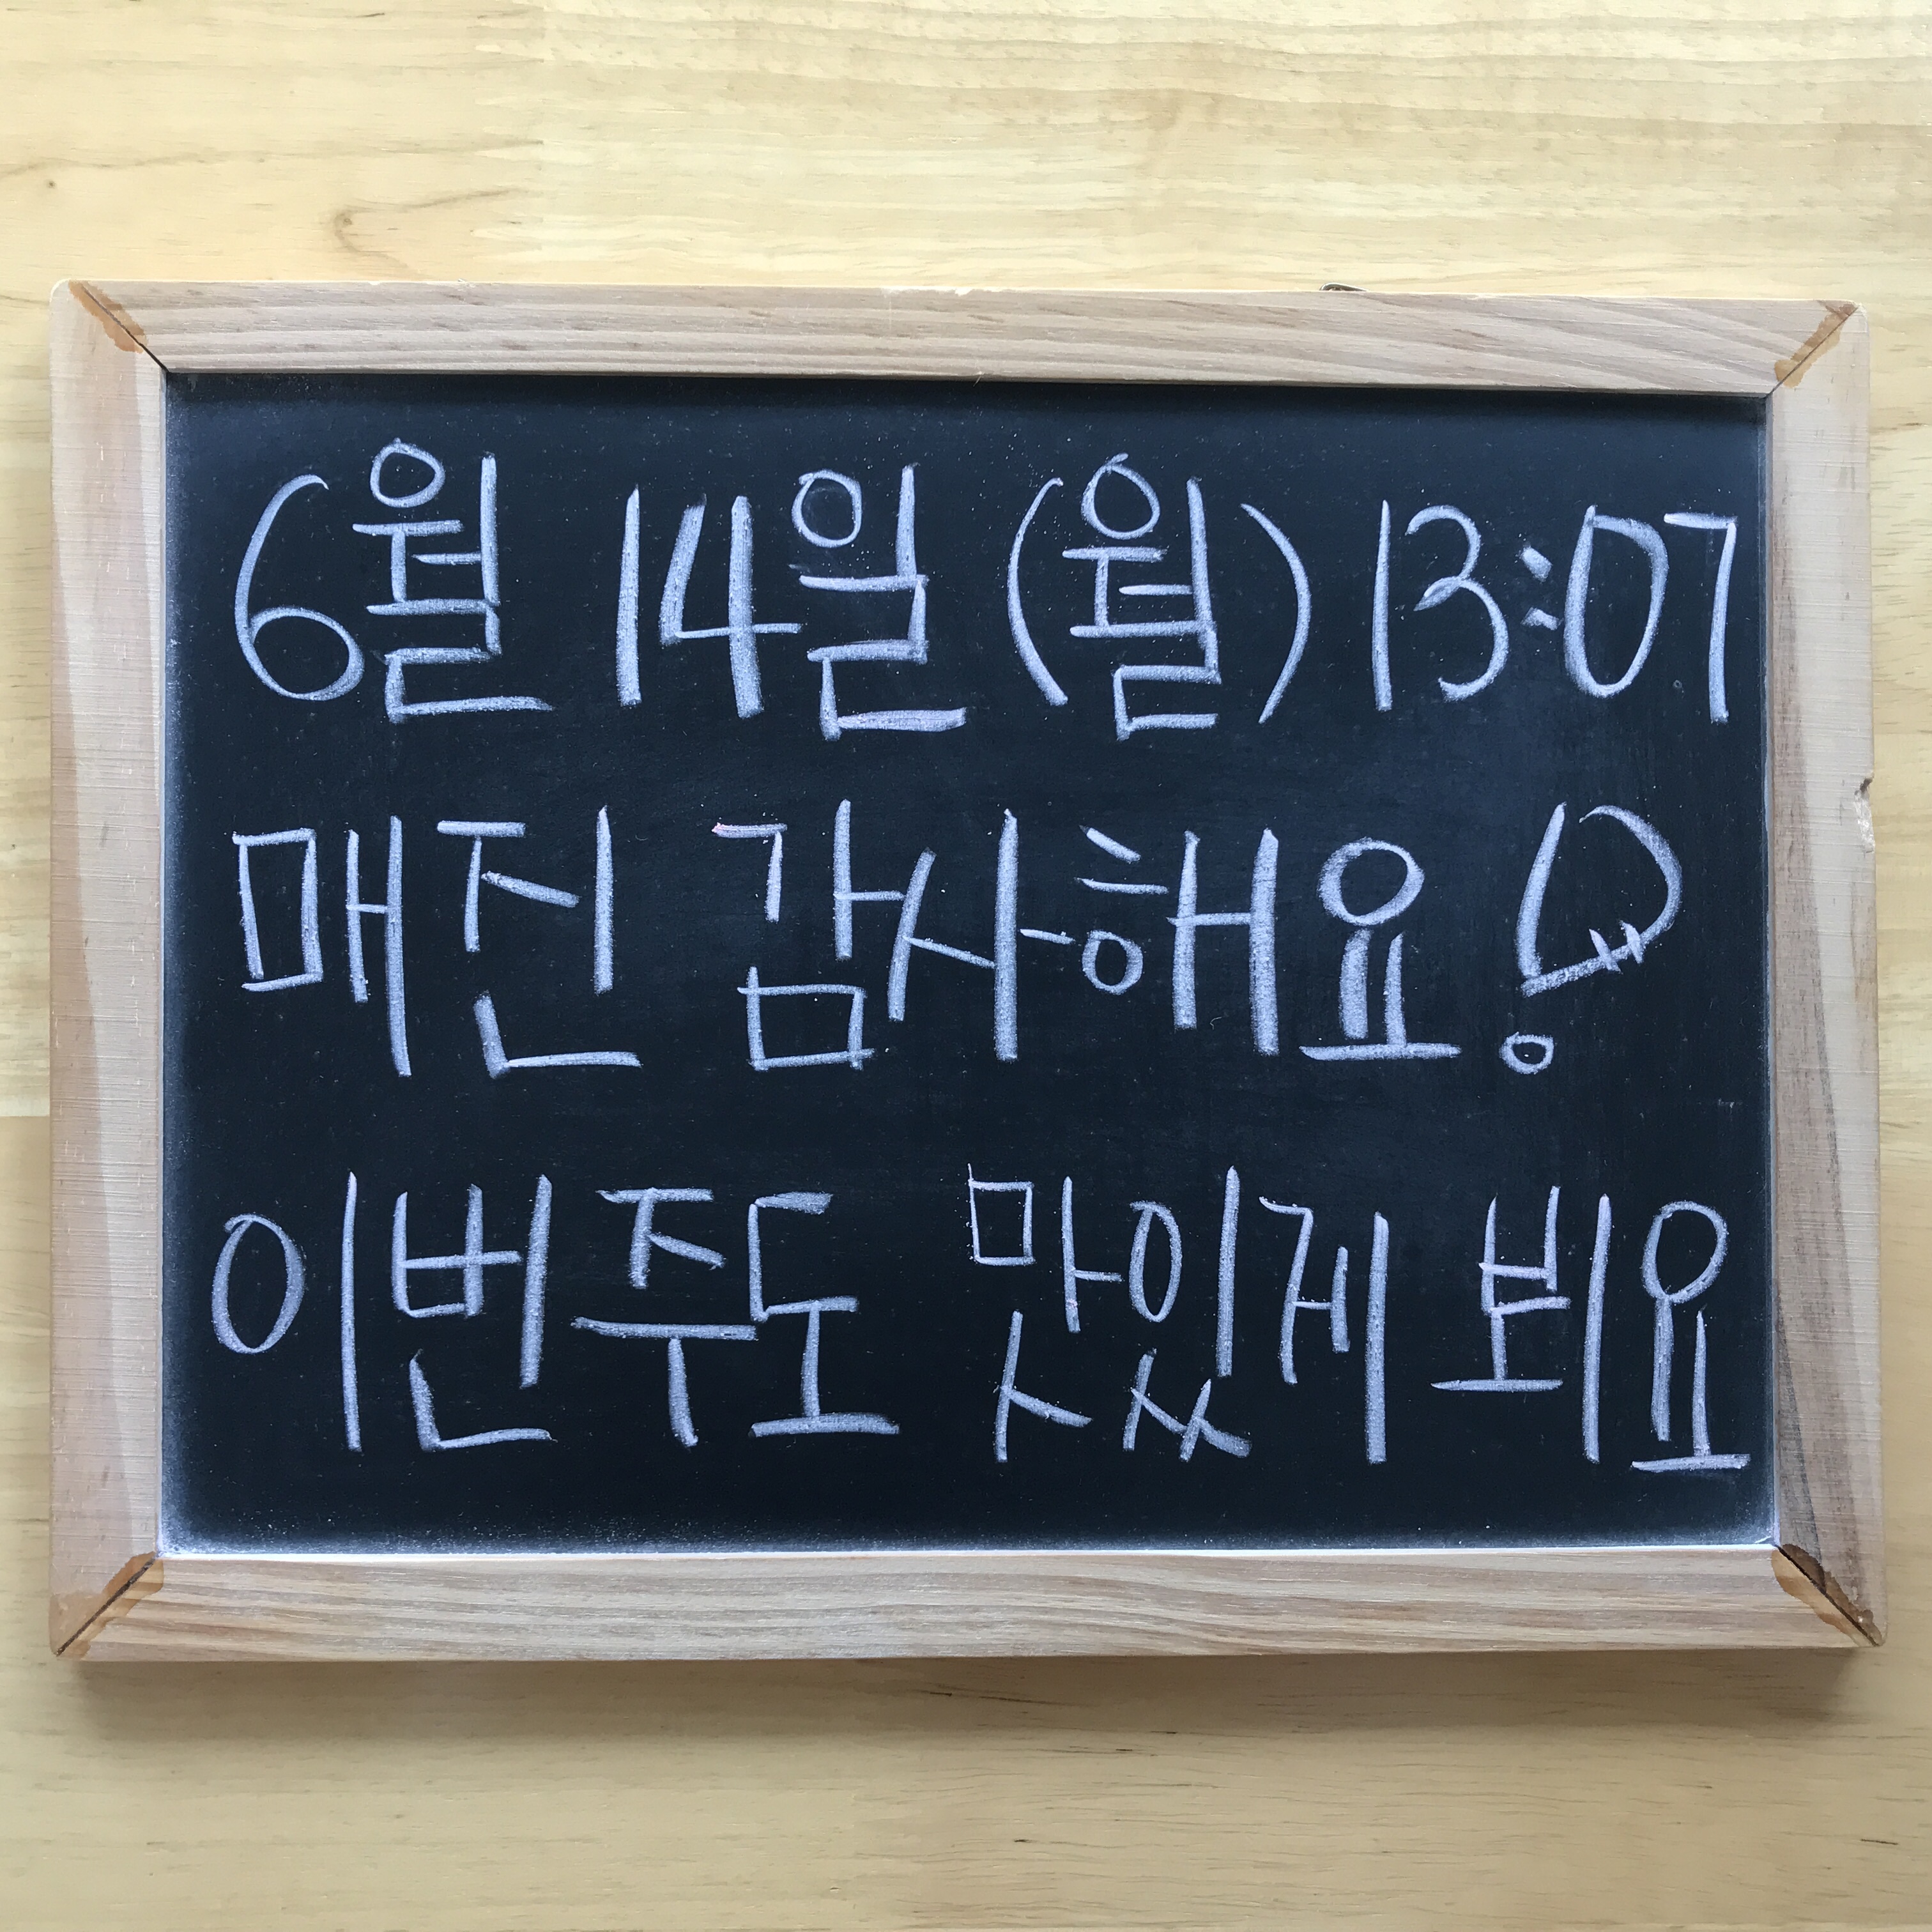 6월 14일 (월) 13:07
매진 감사해요!
이번주도 맛있게 뵈요